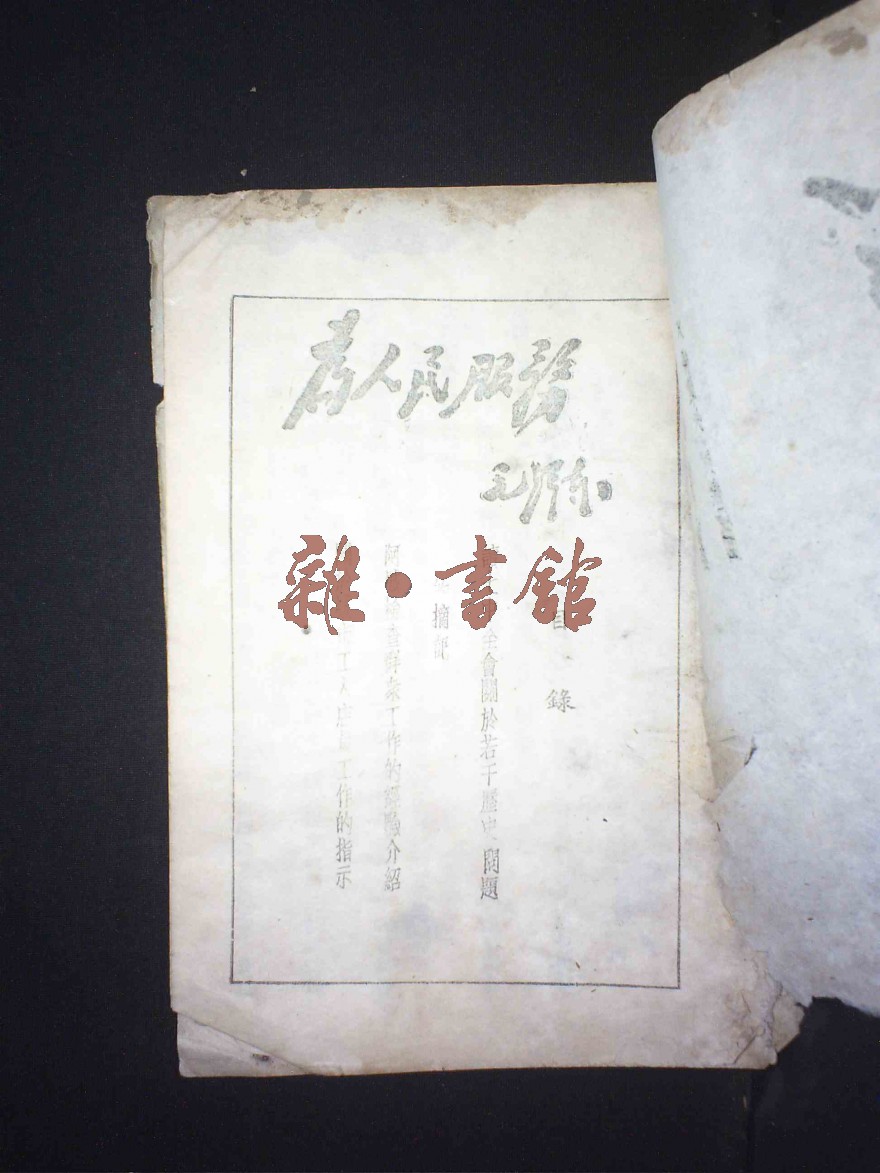 為人民服務
毛澤东
雜·書館
目錄
全會關於若干歷史問題
摘記
阿 檢查群衆工作的經驗介紹
工人 工作的指示